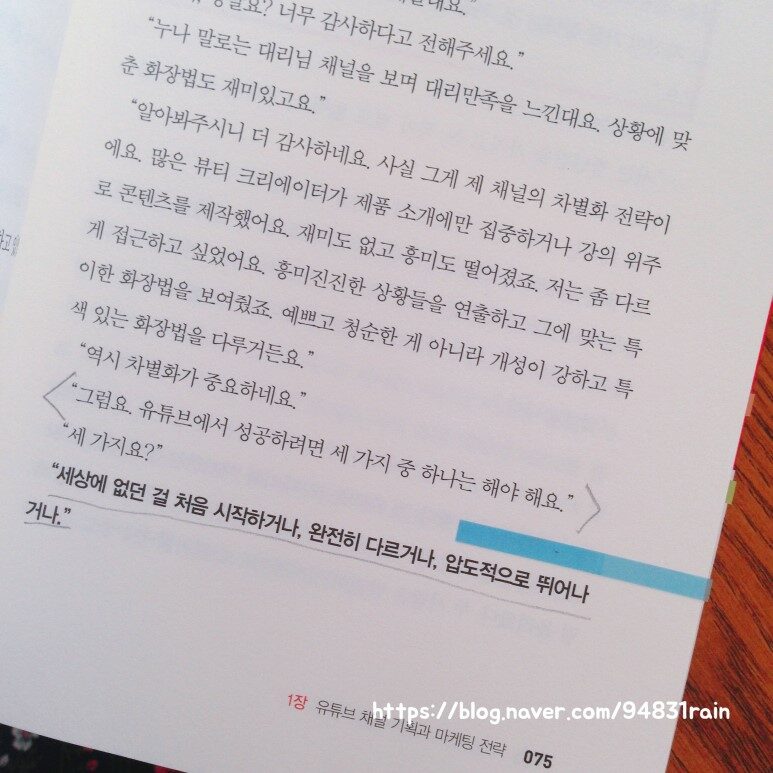 너무 감사하다고 전해주세요.”
“누나 말로는 대리님 채널을 보며 대리만족을 느낀대요. 상황에 맞
춘 화장법도 재미있고요.”
“알아봐주시니 더 감사하네요. 사실 그게 제 채널의 차별화 전략이
에요. 많은 뷰티 크리에이터가 제품 소개에만 집중하거나 강의 위주
로 콘텐츠를 제작했어요. 재미도 없고 흥미도 떨어졌죠. 저는 좀 다르
게 접근하고 싶었어요. 흥미진진한 상황들을 연출하고 그에 맞는 특
이한 화장법을 보여줬죠. 예쁘고 청순한 게 아니라 개성이 강하고 특
색 있는 화장법을 다루거든요.”
“역시 차별화가 중요하네요.”
“그럼요. 유튜브에서 성공하려면 세 가지 중 하나는 해야 해요.”
“세 가지요?”
“세상에 없던 걸 처음 시작하거나, 완전히 다르거나, 압도적으로 뛰어나
거나.”
1장 유튜브 채널 기획과 마케팅 전략 075
https://blog.naver.com/94831rain